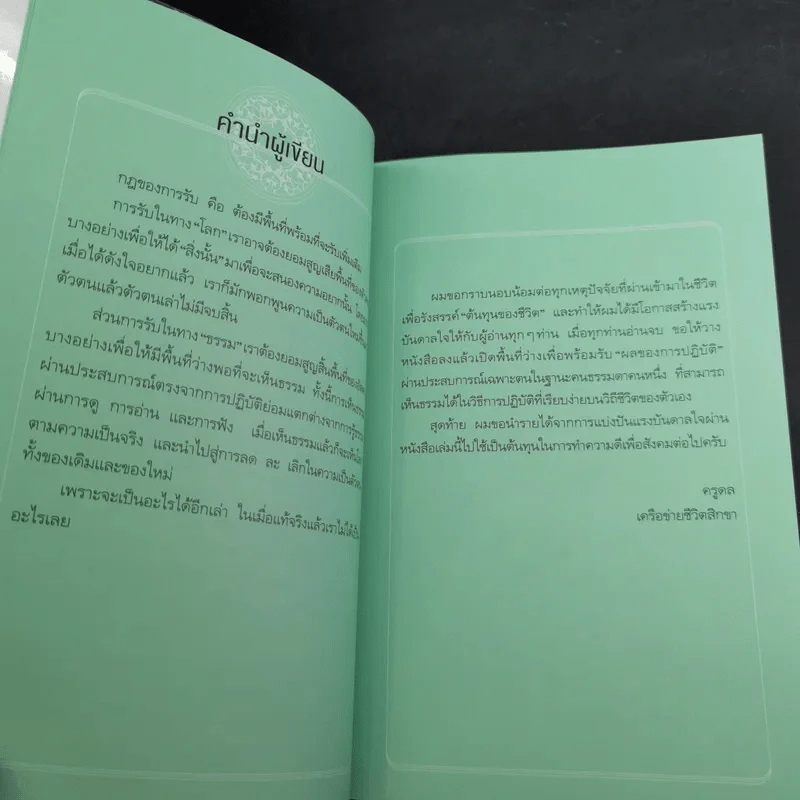 คำนำผู้เขียน
กฎของการรับ คือ ต้องมีพื้นที่พร้อมที่จะรับเพิ่มเติม
การรับในทาง “โลก” เราอาจต้องยอมสูญเสียพื้นที่ของ
บางอย่างเพื่อให้ได้ “สิ่งนั้น” มาเพื่อจะสนองความอยากนั้น
เมื่อได้ดังใจอยากแล้ว เราก็มักพอกพูนความเป็นตัวตน
ตัวตนแล้วตัวตนเล่าไม่มีจบสิ้น
ส่วนการรับในทาง “ธรรม” เราต้องยอมสูญสิ้นพื้นที่ของ
บางอย่างเพื่อให้มีพื้นที่ว่างพอที่จะเห็นธรรม ทั้งนี้การเห็น
ผ่านประสบการณ์ตรงจากการปฏิบัติย่อมแตกต่างจากการ
ผ่านการดู การอ่าน และการฟัง เมื่อเห็นธรรมแล้วก็จะ
ตามความเป็นจริง และนำไปสู่การลด ละ เลิกในความเป็นตัว
ทั้งของเดิมและของใหม่
เพราะจะเป็นอะไรได้อีกเล่า ในเมื่อแท้จริงแล้วเราไม่ได้เป็น
อะไรเลย
ผมขอกราบนอบน้อมต่อทุกเหตุปัจจัยที่ผ่านเข้ามาในชีวิต
เพื่อรังสรรค์ “ต้นทุนของชีวิต” และทำให้ผมได้มีโอกาสสร้างแรง
บันดาลใจให้กับผู้อ่านทุกๆ ท่าน เมื่อทุกท่านอ่านจบ ขอให้วาง
หนังสือลงแล้วเปิดพื้นที่ว่างเพื่อพร้อมรับ “ผลของการปฏิบัติ”
ผ่านประสบการณ์เฉพาะตนในฐานะคนธรรมดาคนหนึ่ง ที่สามารถ
เห็นธรรมได้ในวิธีการปฏิบัติที่เรียบง่ายบนวิถีชีวิตของตัวเอง
สุดท้าย ผมขอนำรายได้จากการแบ่งปันแรงบันดาลใจผ่าน
หนังสือเล่มนี้ไปใช้เป็นต้นทุนในการทำความดีเพื่อสังคมต่อไปครับ
ครูดล
เครือข่ายชีวิตสิกขา